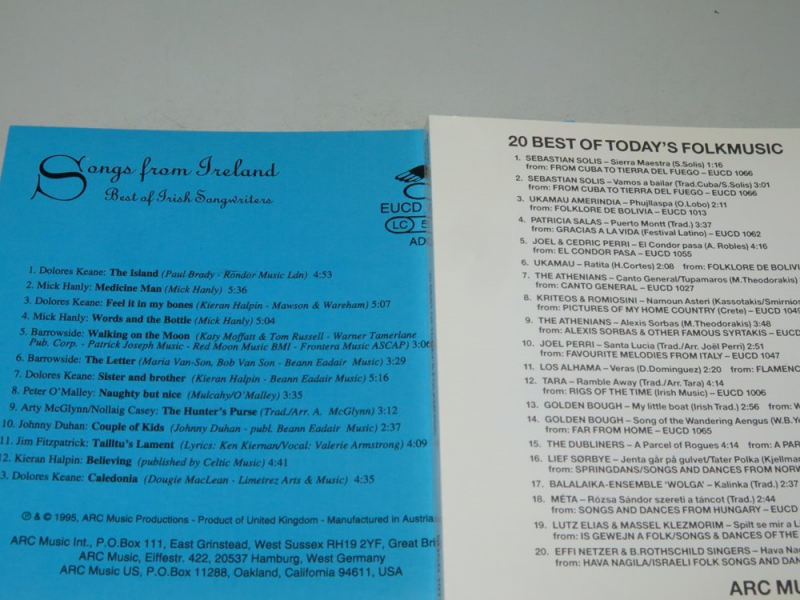 Songs from Ireland
Best of Irish Songwriters
EUCD
LC
1. Dolores Keane: The Island (Paul Brady - Rondor Music Ldn) 4:53
2. Mick Hanly: Medicine Man (Mick Hanly) 5:36
3. Dolores Keane: Feel it in my bones (Kieran Halpin - Mawson & Wareham) 5:07
4. Mick Hanly: Words and the Bottle (Mick Hanly) 5:04
5. Barrowside: Walking on the Moon (Katy Moffatt & Tom Russell - Warner Tamerlane
Pub. Corp. - Patrick Joseph Music - Red Moon Music BMI - Frontera Music ASCAP) 3:06
6. Barrowside: The Letter (Maria Van-Son, Bob Van Son - Beann Eadair Music) 3:29
7. Dolores Keane: Sister and brother (Kieran Halpin - Beann Eadair Music) 5:16
8. Peter O'Malley: Naughty but nice (Mulcahy/O'Malley) 3:35
9. Arty McGlynn/Nollaig Casey: The Hunter's Purse (Trad./Arr. A. McGlynn) 3:12
10. Johnny Duhan: Couple of Kids (Johnny Duhan - publ. Beann Eadair Music) 2:37
11. Jim Fitzpatrick: Tailltu's Lament (Lyrics: Ken Kiernan/Vocal: Valerie Armstrong) 4:09
12. Kieran Halpin: Believing (published by Celtic Music) 4:41
3. Dolores Keane: Caledonia (Dougie MacLean - Limetrez Arts & Music) 4:35
℗ & © 1995, ARC Music Productions - Product of United Kingdom - Manufactured in Austria
ARC Music Int., P.O.Box 111, East Grinstead, West Sussex RH19 2YF, Great Bri
ARC Music, Eiffestr. 422, 20537 Hamburg, West Germany
ARC Music US, P.O.Box 11288, Oakland, California 94611, USA
20 BEST OF TODAY'S FOLKMUSIC
1. SEBASTIAN SOLIS – Sierra Maestra (S.Solis) 1:16
from: FROM CUBA TO TIERRA DEL FUEGO – EUCD 1066
2. SEBASTIAN SOLIS – Vamos a bailar (Trad.Cuba/S.Solis) 3:01
from: FROM CUBA TO TIERRA DEL FUEGO – EUCD 1066
3. UKAMAU AMERINDIA – Phujllaspa (O.Lobo) 2:11
from: FOLKLORE DE BOLIVIA – EUCD 1013
4. PATRICIA SALAS – Puerto Montt (Trad.) 3:37
from: GRACIAS A LA VIDA (Festival Latino) – EUCD 1062
5. JOEL & CEDRIC PERRI – El Condor pasa (A. Robles) 4:16
from: EL CONDOR PASA – EUCD 1055
6. UKAMAU – Ratita (H.Cortes) 2:08 from: FOLKLORE DE BOLIVIA
7. THE ATHENIANS – Canto General/Tupamaros (M.Theodorakis)
from: CANTO GENERAL – EUCD 1027
8. KRITEOS & ROMIOSINI – Namoun Asteri (Kassotakis/Smirnio
from: PICTURES OF MY HOME COUNTRY (Crete) – EUCD 1049
9. THE ATHENIANS – Alexis Sorbas (M.Theodorakis) 3:48
from: ALEXIS SORBAS & OTHER FAMOUS SYRTAKIS – EUCD
10. JOEL PERRI – Santa Lucia (Trad./Arr. Joël Perri) 2:51
from: FAVOURITE MELODIES FROM ITALY – EUCD 1047
11. LOS ALHAMA – Veras (D.Dominguez) 2:20 from: FLAMENC
12. TARA – Ramble Away (Trad./Arr. Tara) 4:14
from: RIGS OF THE TIME (Irish Music) – EUCD 1006
13. GOLDEN BOUGH – My little boat (Irish Trad.) 2:56
14. GOLDEN BOUGH – Song of the Wandering Aengus (W.B.Ye
from: FAR FROM HOME – EUCD 1065
15. THE DUBLINERS – A Parcel of Rogues 4:14 from: A PAR
16. LIEF SØRBYE – Jenta går på gulvet/Tater Polka (Kjellmar
from: SPRINGDANS/SONGS AND DANCES FROM NORW
17. BALALAIKA-ENSEMBLE 'WOLGA' – Kalinka (Trad.) 2:37
18. MÉTA – Rózsa Sándor szereti a táncot (Trad.) 2:44
from: SONGS AND DANCES FROM HUNGARY – EUCD
19. LUTZ ELIAS & MASSEL KLEZMORIM – Spilt se mir a L
from: IS GEWEJN A FOLK/SONGS & DANCES OF THE
20. EFFI NETZER & B.ROTHSCHILD SINGERS – Hava Na
from: HAVA NAGILA/ISRAELI FOLK SONGS AND DAN
ARC MU